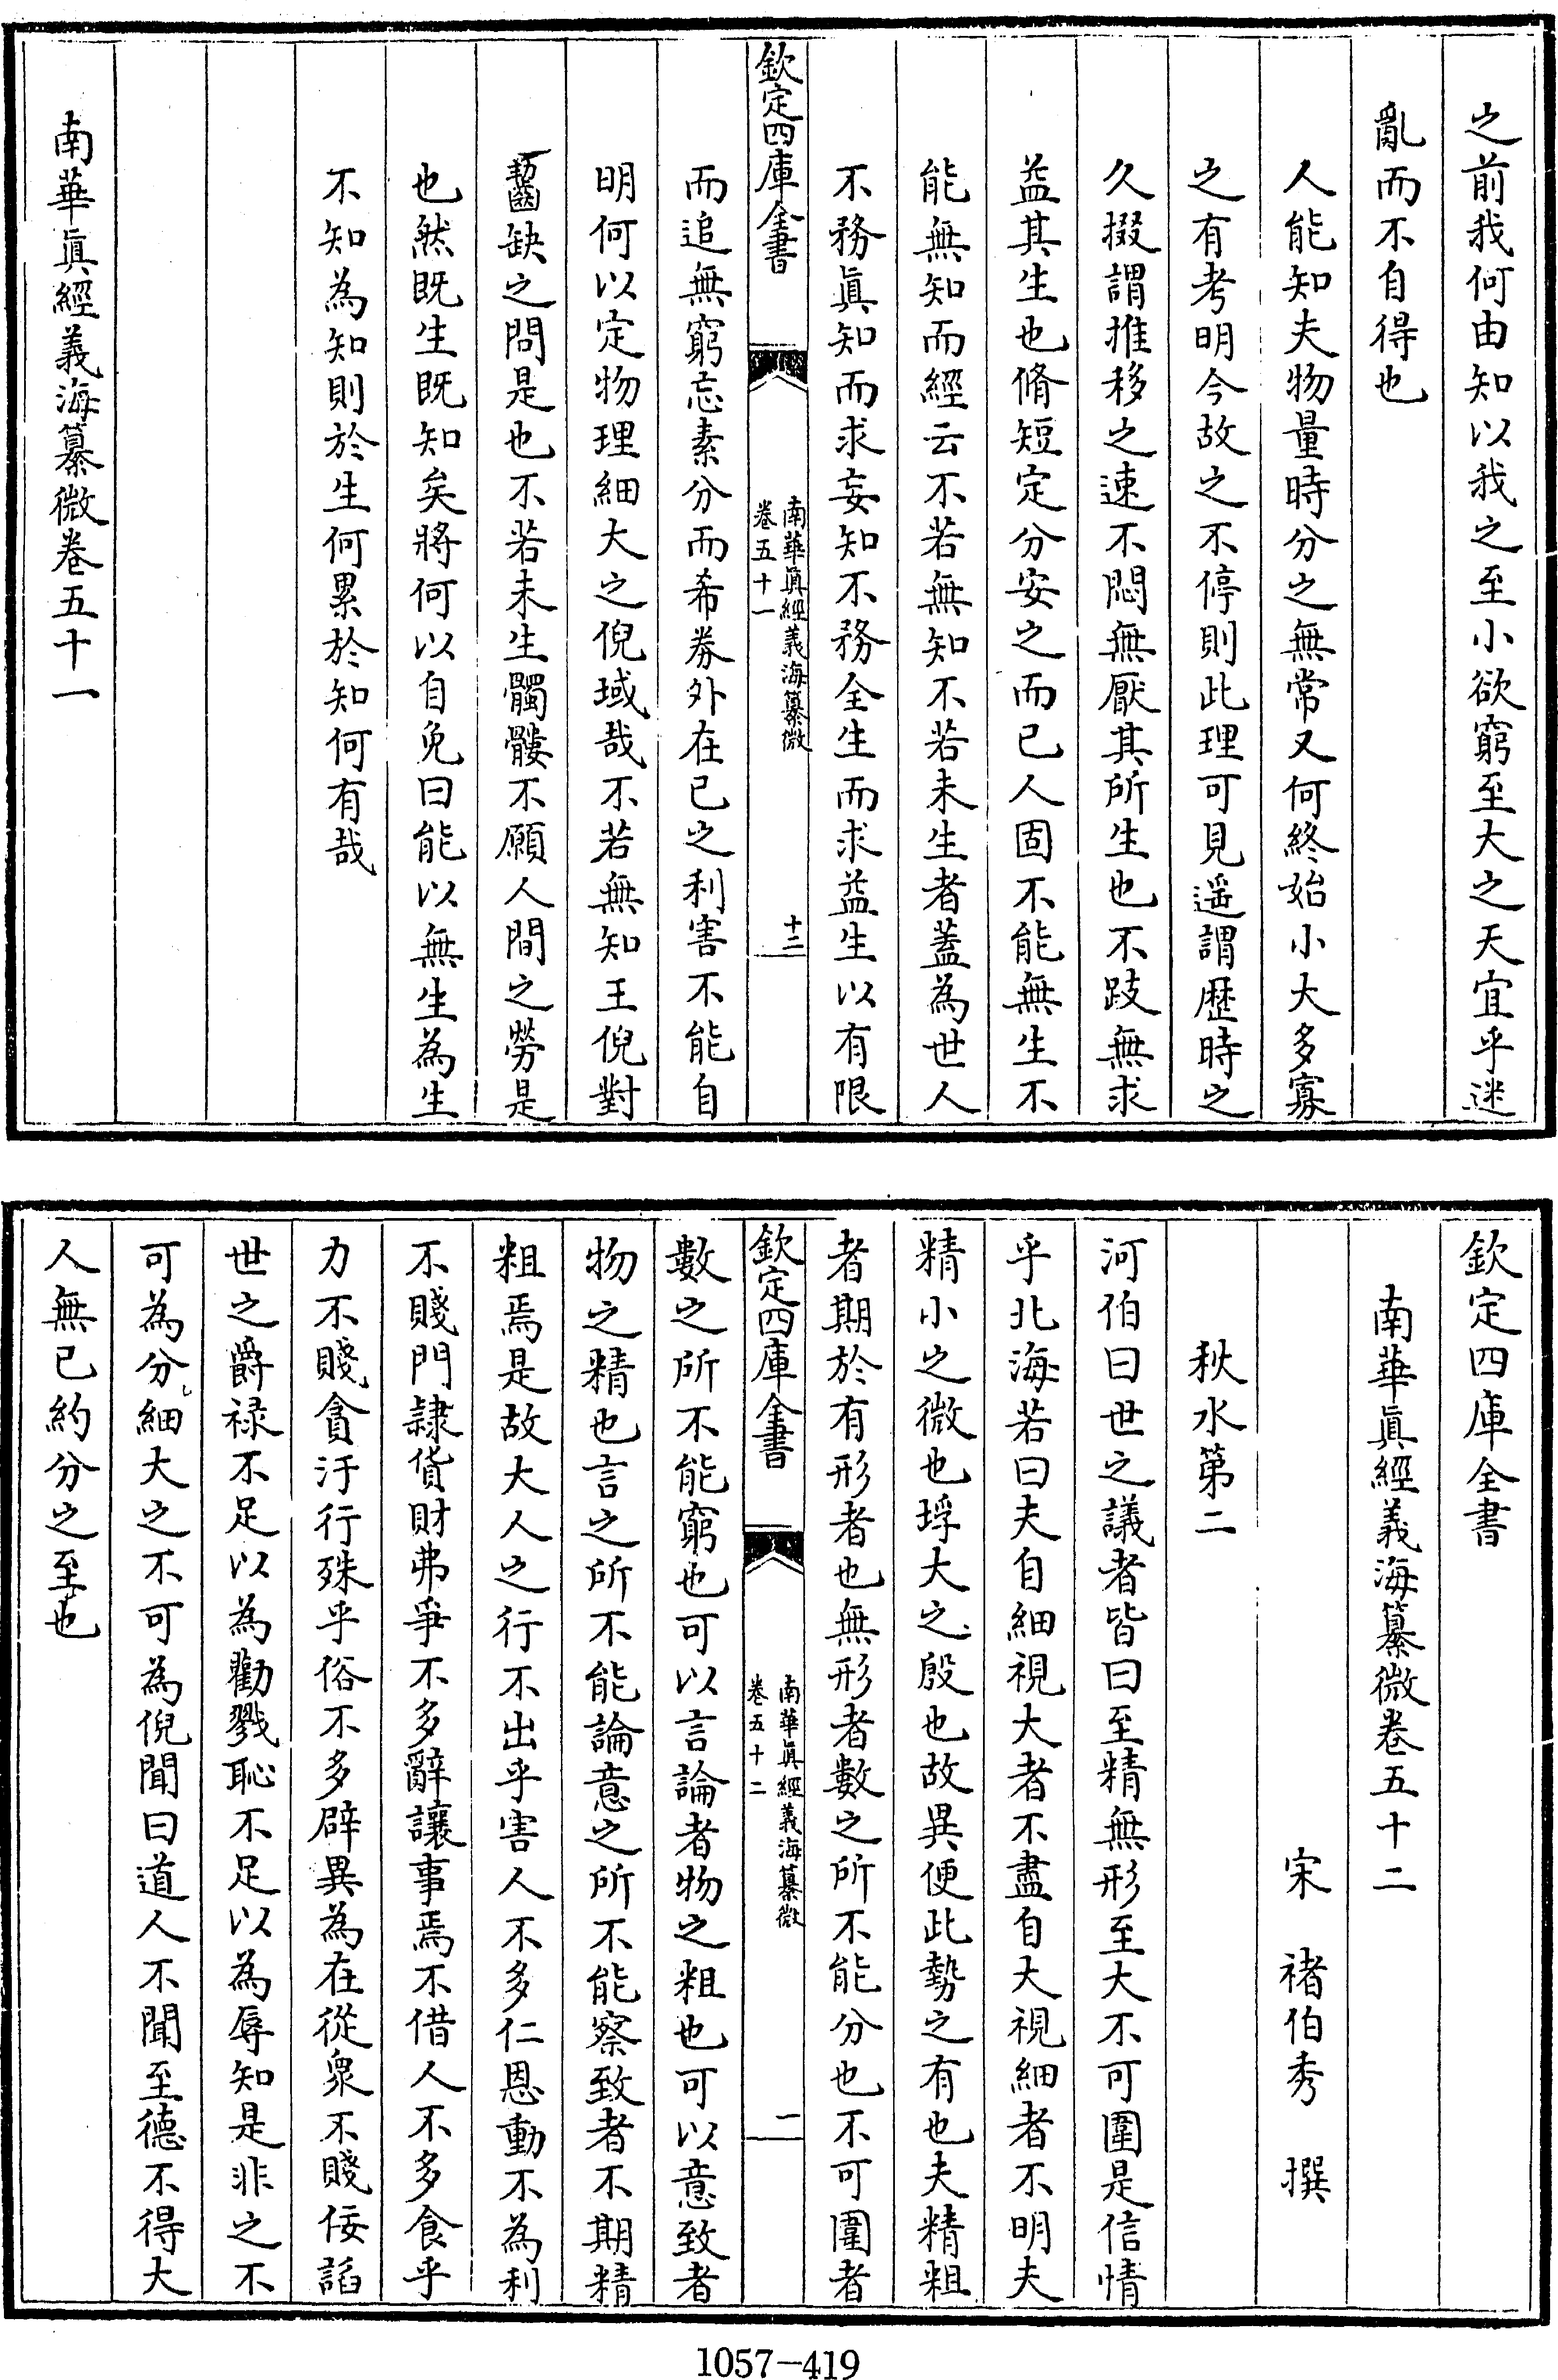 之前我何由知以我之至小欲窮至大之天宜乎迷
亂而不自得也
人能知夫物量時分之無常又何終始小大多寡
之有考明今故之不停則此理可見遥謂歴時之
久掇謂推移之速不悶無厭其所生也不跂無求
益其生也脩短定分安之而已人固不能無生不
能無知而經云不若無知不若未生者蓋為世人
不務眞知而求妄知不務全生而求益生以有限
欽定四庫全書
南華眞經義海纂微
卷五十一
十二
而追無窮忘素分而希券外在已之利害不能自
明何以定物理細大之倪域哉不若無知王倪對
齧缺之問是也不若未生髑髏不願人間之勞是
也然既生既知矣將何以自免曰能以無生為生
不知為知則於生何累於知何有哉
南華眞經義海纂微卷五十一
欽定四庫全書
南華眞經義海纂微卷五十二
宋 褚伯秀 撰
秋水第二
河伯曰世之議者皆曰至精無形至大不可圍是信情
乎北海若曰夫自細視大者不盡自大視細者不明夫
精小之微也垺大之殷也故異便此勢之有也夫精粗
者期於有形者也無形者數之所不能分也不可圍者
欽定四庫全書
南華眞經義海纂微
卷五十二
一
數之所不能窮也可以言論者物之粗也可以意致者
物之精也言之所不能論意之所不能察致者不期精
粗焉是故大人之行不出乎害人不多仁恩動不為利
不賤門隷貨財弗爭不多辭讓事焉不借人不多食乎
力不賤貪汙行殊乎俗不多辟異為在從衆不賤佞諂
世之爵禄不足以為勸戮恥不足以為辱知是非之不
可為分細大之不可為倪聞曰道人不聞至德不得大
人無已約分之至也
1057-419